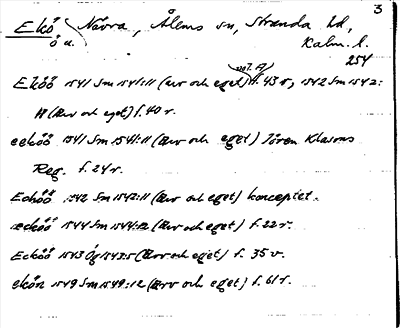 3
Ekö Navra, Ålems sn, Stranda hd,
ö u. Kalm. l.
254
Eköö 1541 Sm 1541:11 (Arv och eget) vol. A f. 43 r, 1542 Sm 1542:
A (Arv och eget) f. 40 r.
ecköö 1541 Sm 1541:11 (Arv och eget) Jören Klasons
Reg. f. 24 r.
Echöö 1542 Sm 1542:11 (Arv och eget) konceptet.
æcköö 1544 Sm 1544:12 (Arv och eget) f. 22 r.
Ecköö 1543 Ög 1543:5 (Arv och eget) f. 35 v.
ekön 1549 Sm 1549:12 (Arv och eget) f. 61 r.